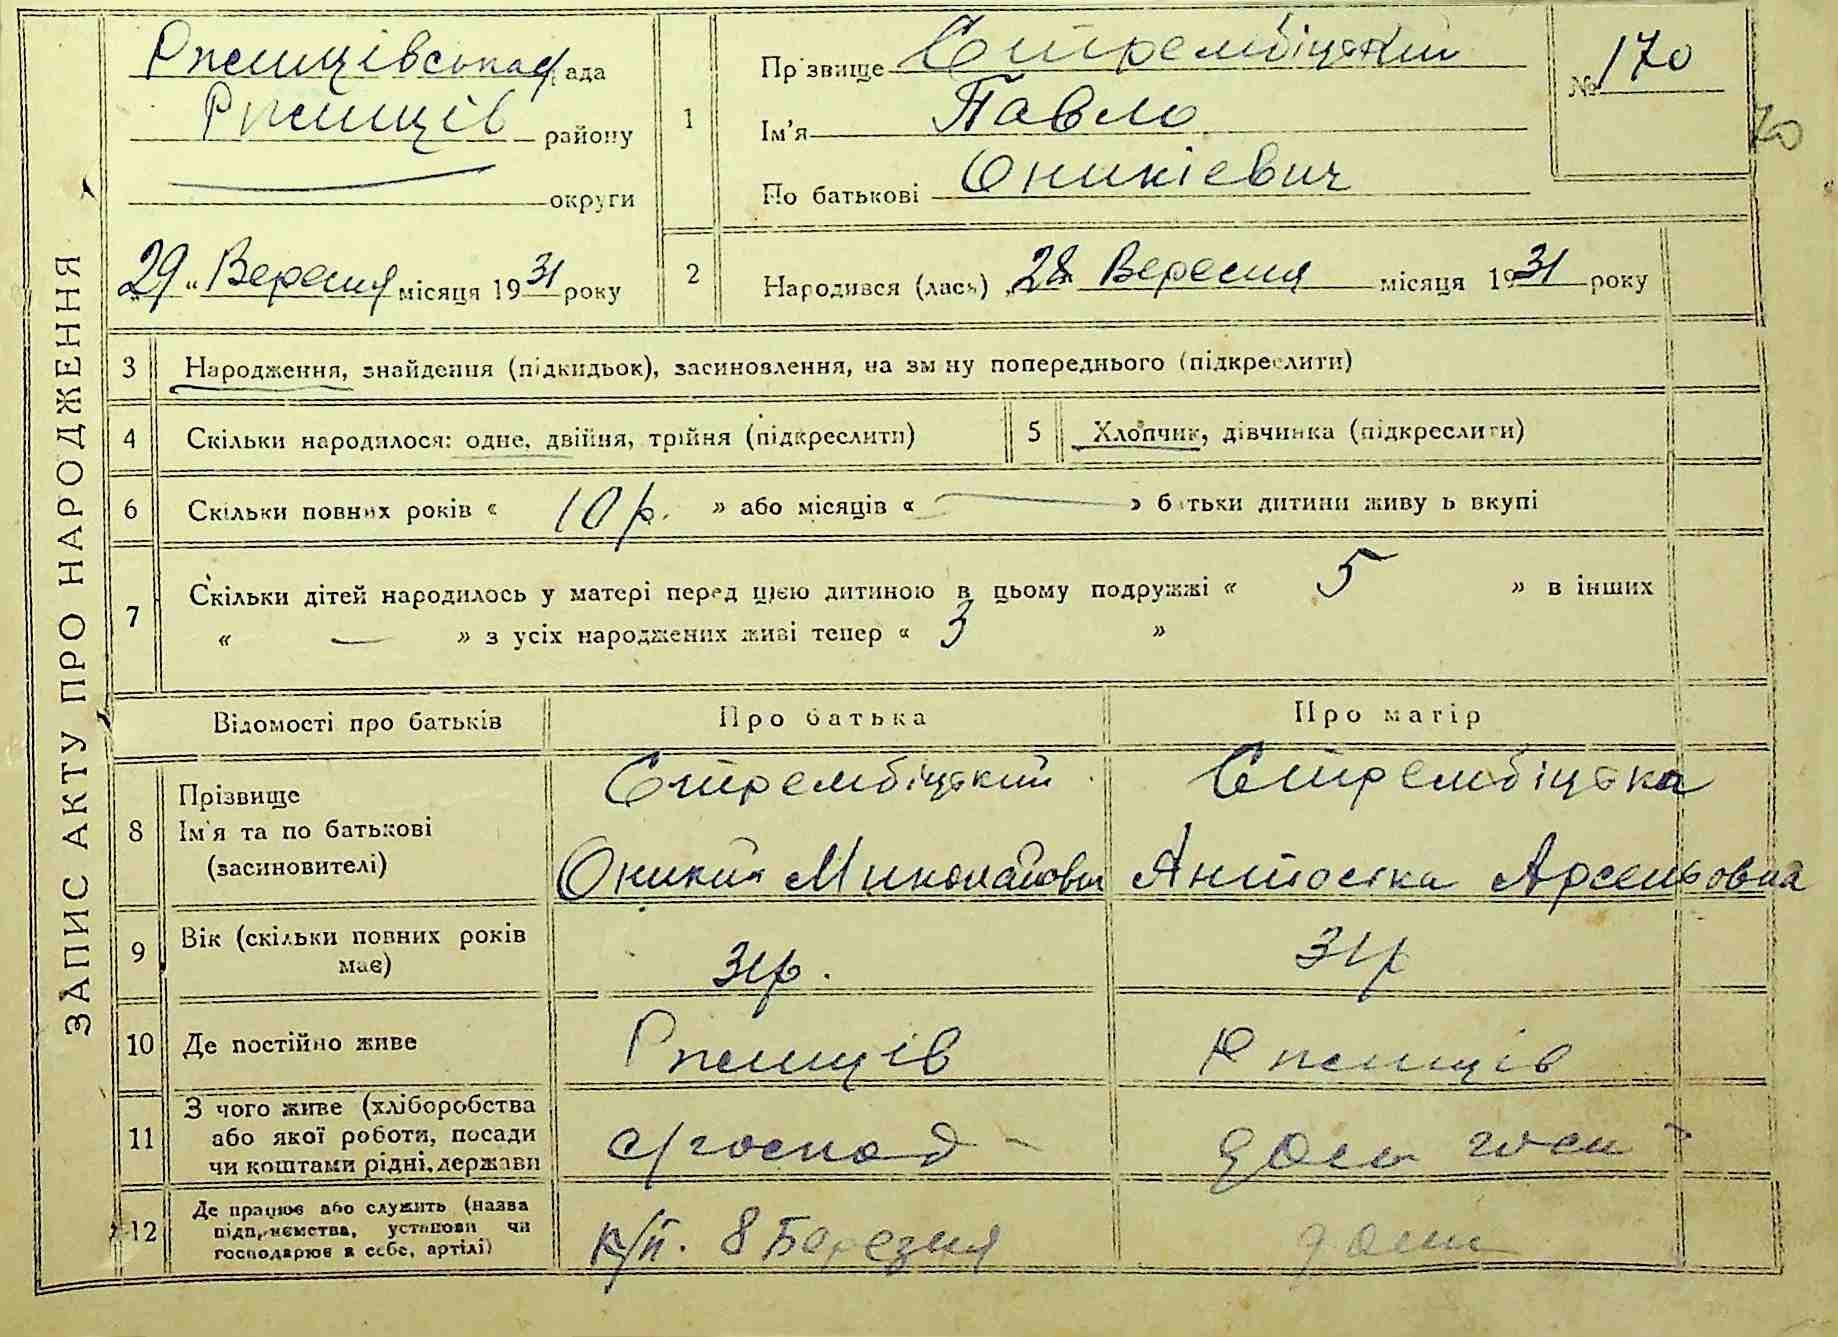 ЗАПИС АКТУ ПРО НАРОДЖЕННЯ
Ржищівська рада
Ржищів району
округи
29 „ Вересня місяця 1931 року
1
Прізвище Стрембіцький
Ім'я Павло
По батькові Оникієвич
№ 170
70
2 Народився (лась) „28 Вересня місяця 1931 року
3 Народження, знайдення (підкидьок), засиновлення, на зміну попереднього (підкреслити)
4 Скільки народилося: одне, двійня, трійня (підкреслити) 5 Хлопчик, дівчинка (підкреслити)
6 Скільки повних років « 10 р. » або місяців « — » батьки дитини живуть вкупі
7 Скільки дітей народилось у матері перед цією дитиною в цьому подружжі « 5 » в інших
« — » з усіх народжених живі тепер « 3 »
Відомості про батьків Про батька Про матір
8 Прізвище Стрембіцький Стрембіцька
Ім'я та по батькові
(засиновителі) Оникий Миколайович Антоська Арсеньовна
9 Вік (скільки повних років
має) 31 р. 31 р
10 Де постійно живе Ржищів Ржищів
11 З чого живе (хліборобства
або якої роботи, посади
чи коштами рідні, держави с/господ- дом госп-
12 Де працює або служить (назва
підприємства, установи чи
господарює в себе, артілі) к/п. 8 Березня дома